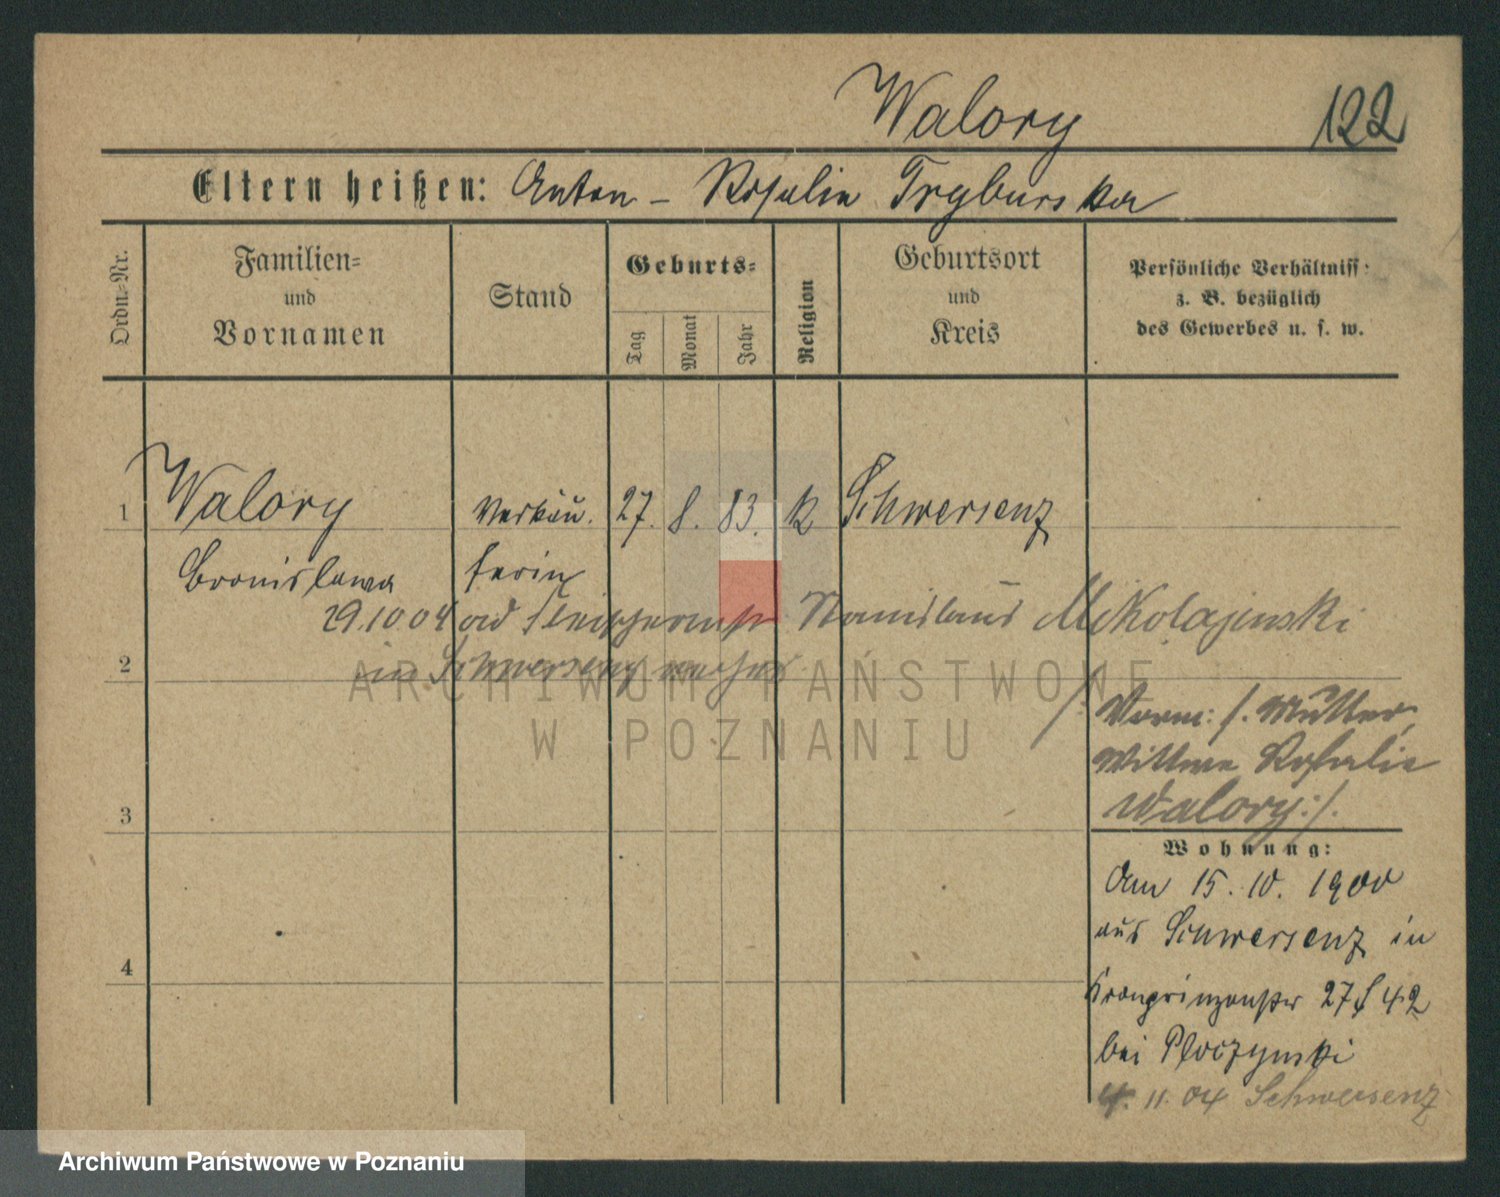 Walory 122
Eltern heißen: Anton - Rosalie Tryburska
Ordn.-Nr.
Familien-
und
Vornamen
Stand
Geburts-
Tag
Monat
Jahr
Religion
Geburtsort
und
Kreis
Persönliche Verhältniss:
z. B. bezüglich
des Gewerbes u. s. w.
1 Walory Verkäu. 27. 8. 83. k Schwersenz
Bronislawa ferin
29.10.04 ad Fleischermstr Stanislaus Mikolajewski
in Schwersenz
2
ARCHIWUM PAŃSTWOWE
W POZNANIU
/: Vorm: /. Mutter,
Wittwe Rosalie
Walory :/.
3
Wohnung:
Am 15. 10. 1900
aus Schwersenz in
Kronprinzenstr 27 f 42
bei Ploczynski
4
4. 11. 04 Schwersenz
Archiwum Państwowe w Poznaniu